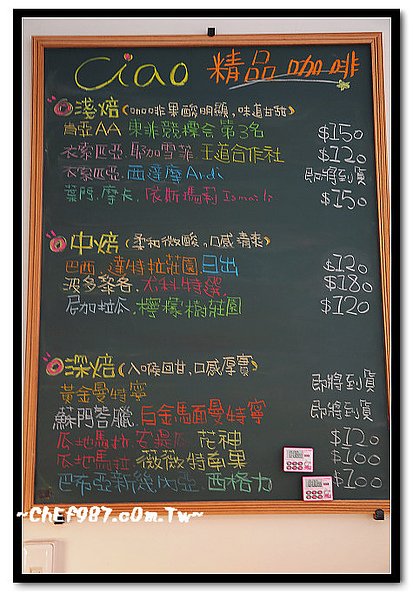 Ciao 精品咖啡
淺焙(咖啡果酸明顯,味道甘甜)
肯亞AA 東非競標會第3名 $150
衣索匹亞.耶加雪菲.王道合作社 $120
衣索匹亞.西達摩Ardi 即將到貨
葉門.摩卡.依斯瑪莉Ismaili $150
中焙(柔和微酸,口感清爽)
巴西.達特拉莊園.日出 $120
波多黎各.尤科特選 $180
尼加拉瓜.檸檬樹莊園 $120
深焙(入喉回甘,口感厚實)
黃金曼特寧 即將到貨
蘇門答臘.白金馬面曼特寧 即將到貨
瓜地馬拉 花神 $120
瓜地馬拉.薇薇特南果 $100
巴布亞新幾內亞 西格力 $100
~Chef987.c0m.Tw~